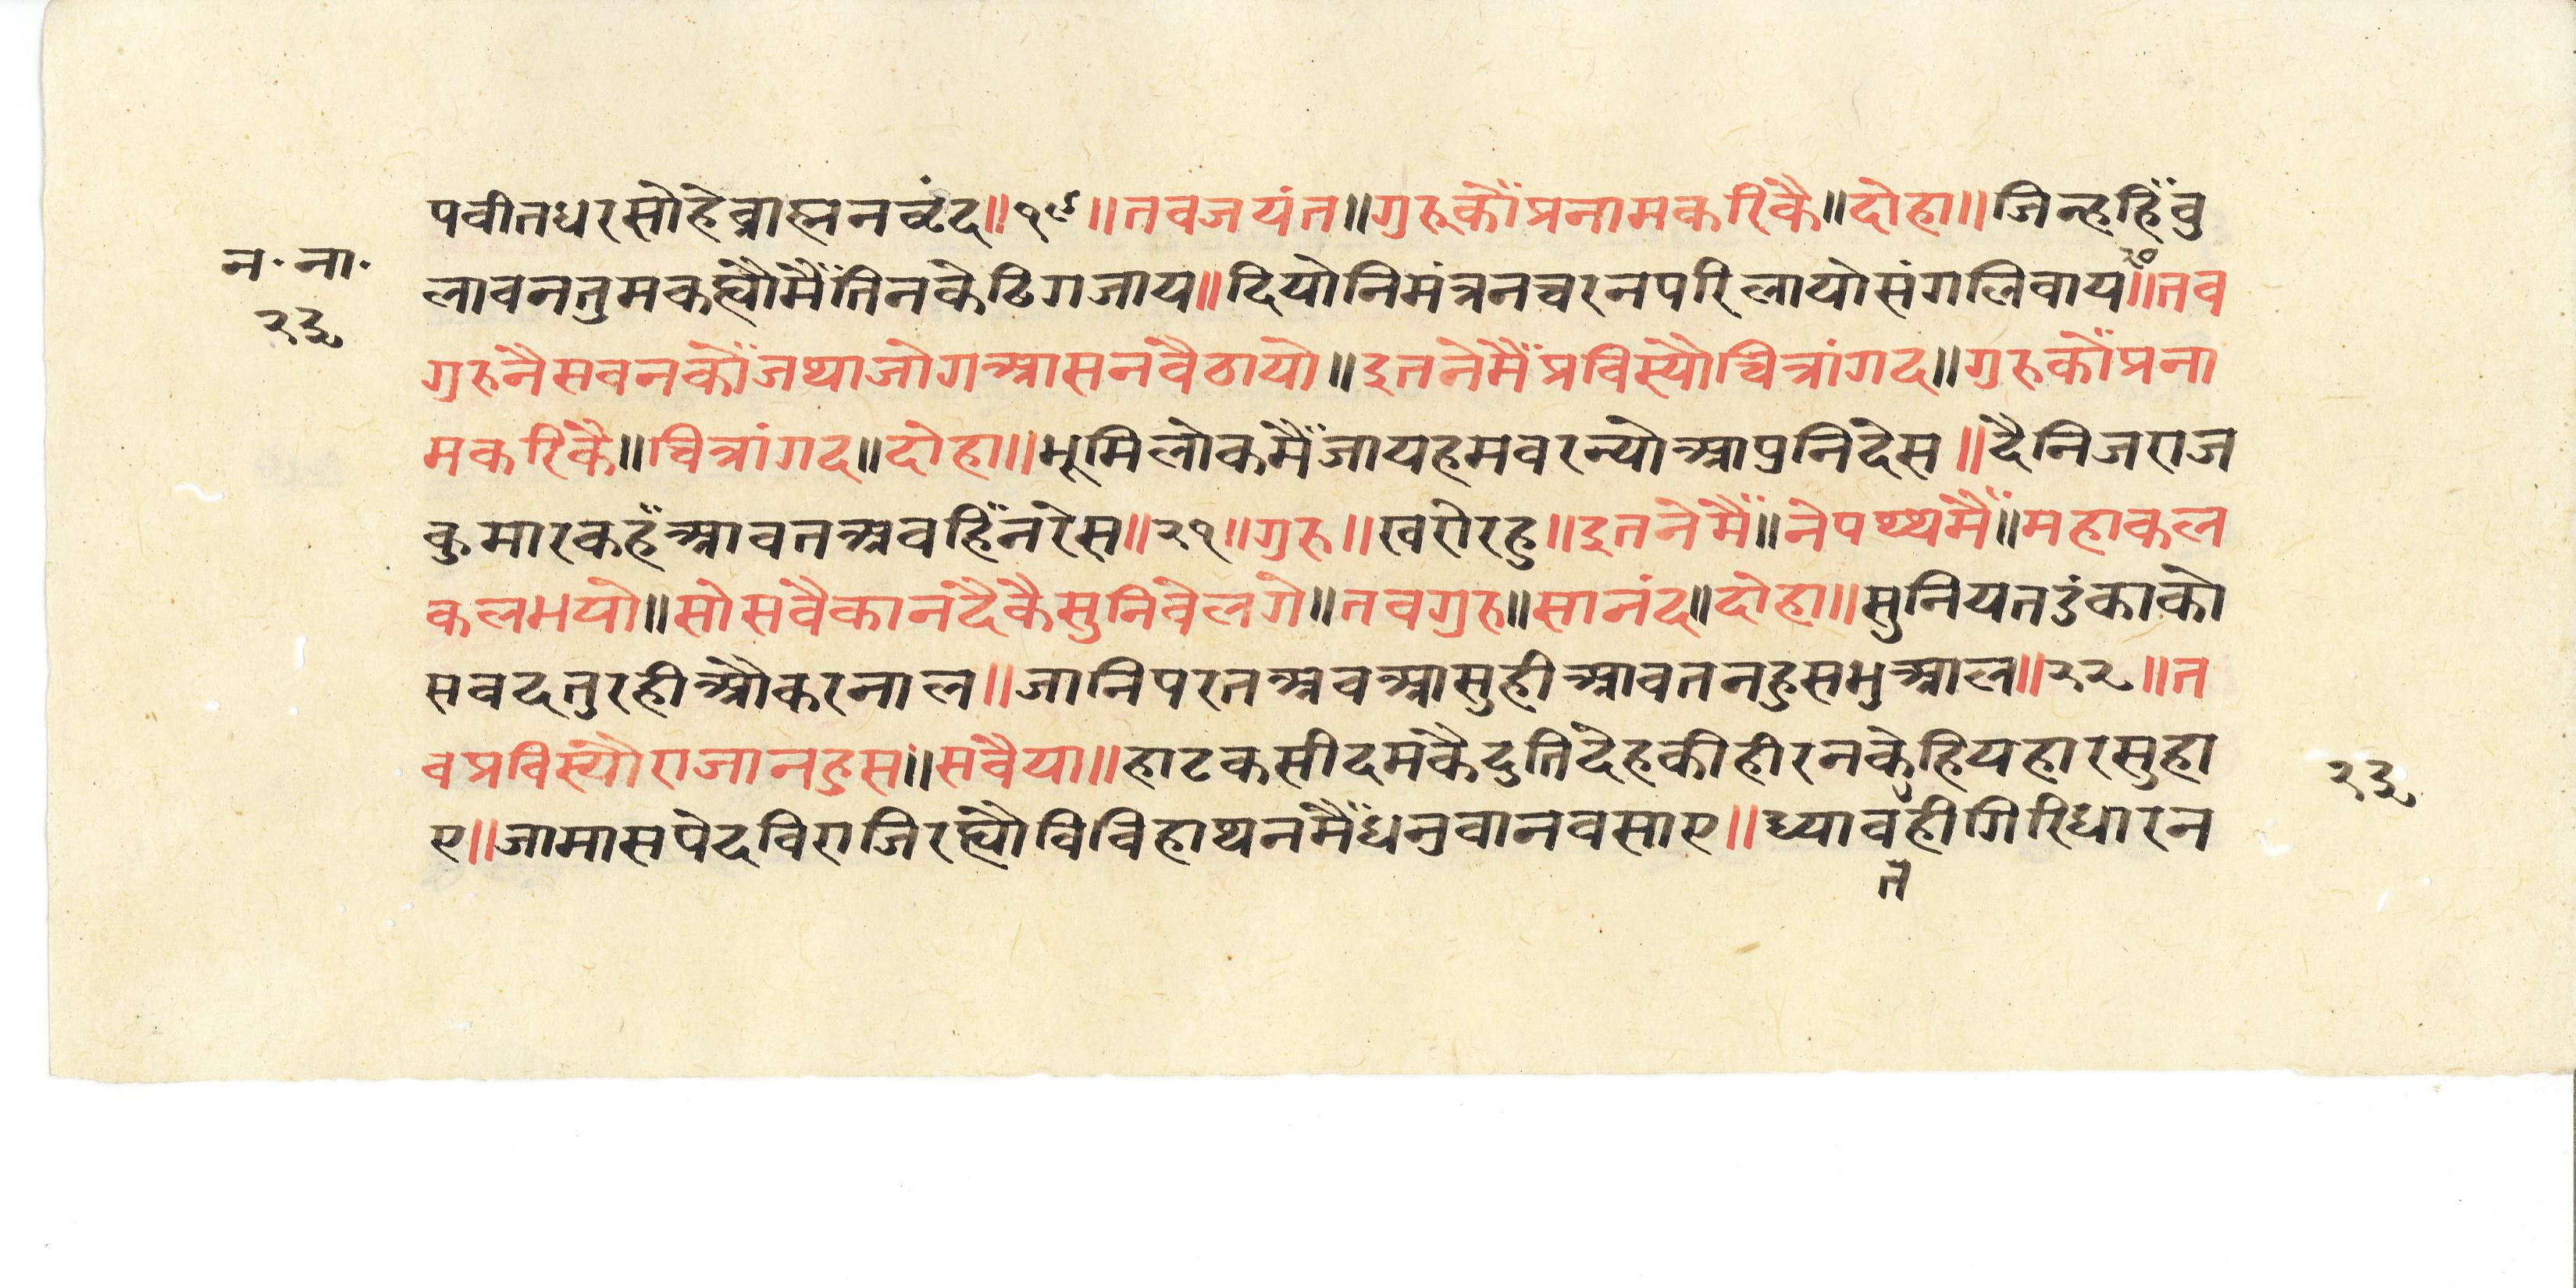 पवीतधरसोहेव्राह्मनवृंद॥१९॥तवजयंत॥गुरुकौंप्रनामकरिकै॥दोहा॥जिन्हहिंवु
न॰ना॰
२३
लावनतुमकह्यौमैंतिनकेढिगजाय॥दियोनिमंत्रनचरनपरिलायोसंगलिवाय॥२०॥तव
गुरुनैसवनकौंजथाजोगआसनवैठायो॥इतनेमैंप्रविस्यौचित्रांगद॥गुरुकौंप्रना
मकरिकै॥चित्रांगद॥दोहा॥भूमिलोकमैंजायहमवरन्योआपुनिदेस॥दैनिजराज
कुमारकहँआवतअवहिंनरेस॥२१॥गुरु॥खरोरहु॥इतनेमैं॥नेपथ्थमैं॥महाकल
कलभयो॥सोसवैकानंदैकैसुनिवेलगे॥तवगुरु॥सानंद॥दोहा॥सुनियतडंकाको
सवदतुरहीऔकरनाल॥जानिपरतअवआसुहीआवतनहुसभुआल॥२२॥त
वप्रविस्यौराजानहुस॥सवैया॥हाटकसीदमकैदुतिदेहकीहीरनकेहियहारसुहा
ए॥जामासपेदविराजिरह्यौविविहाथनमैंधनुवानवसाए॥ध्यावतहीगिरिधारन
२३